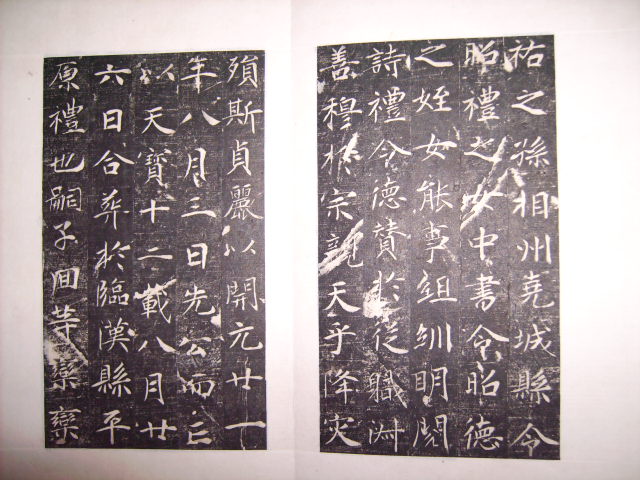 祐之孫相州堯城縣令
昭禮之女中書令昭德
之姪女能事組紃明閑
詩禮令德贊於從職淑
善穆於宗親天乎降灾
殞斯貞麗以開元廿一
年八月三日先公而亡
以天寶十二載八月廿
六日合葬於臨漢縣平
原禮也嗣子回等欒欒